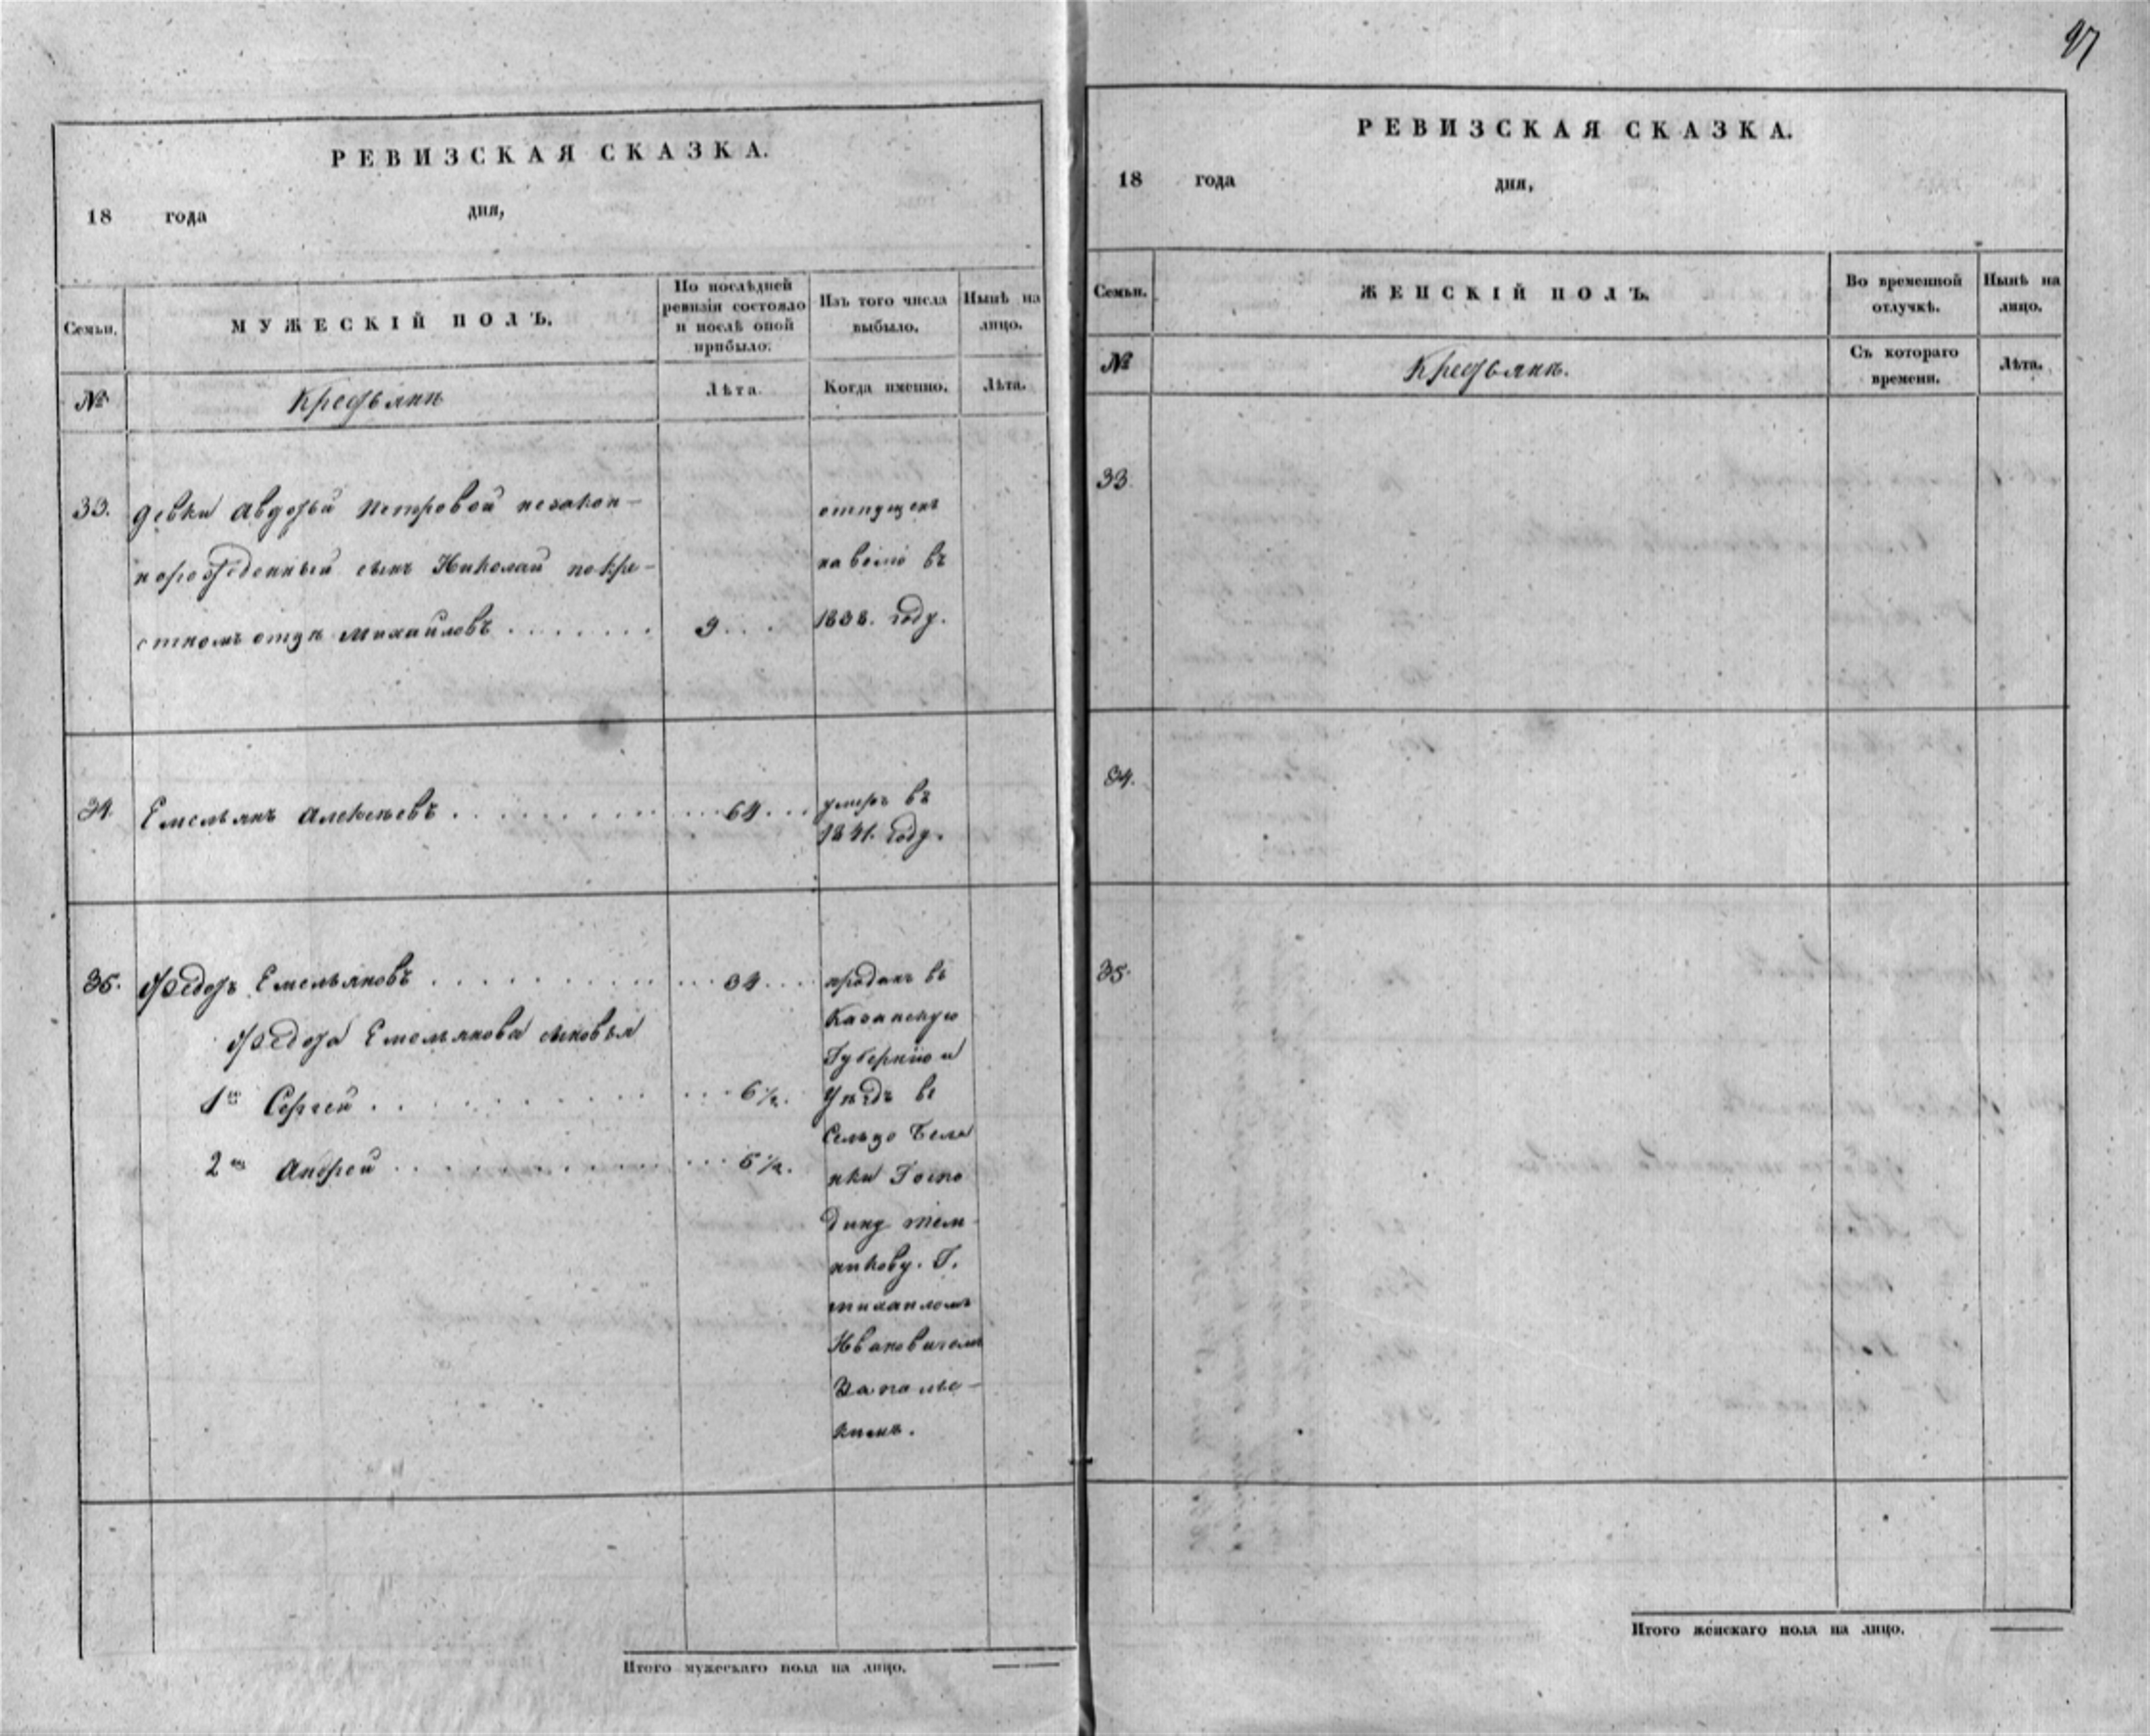 97
РЕВИЗСКАЯ СКАЗКА.
18 года дня,
Семьи.
МУЖЕСКІЙ ПОЛЪ.
По послѣдней ревизіи состояло и послѣ оной прибыло.
Изъ того числа выбыло.
Нынѣ на лицо.
№
Крестьянъ
Лѣта.
Когда именно.
Лѣта.
33. девки Авдотьи Петровой незакон-
норожденный сынъ Николай по кре-
стномъ отцѣ Михайловъ . . . . . . . 9 . . .
отпущенъ
на волю въ
1838. году.
34. Емельянъ Алексѣевъ . . . . . . . . . . 64 . . .
умеръ въ
1841. году.
35. Федоръ Емельяновъ . . . . . . . . . . 34 . . .
Федора Емельянова сыновья
1й Сергей . . . . . . . . . . 6 ½.
2й Андрей . . . . . . . . . . 5 ½.
проданъ въ
Казанскую
Губернію и
Уѣздъ въ
Сельцо
Госпо
дину
никову. Г.
Михаиломъ
Ивановичемъ
кимъ.
Итого мужескаго пола на лицо. —
РЕВИЗСКАЯ СКАЗКА.
18 года дня,
Семьи.
ЖЕНСКІЙ ПОЛЪ.
Во временной отлучкѣ.
Нынѣ на лицо.
№
Крестьянъ.
Съ котораго времени.
Лѣта.
33.
34.
35.
Итого женскаго пола на лицо. —